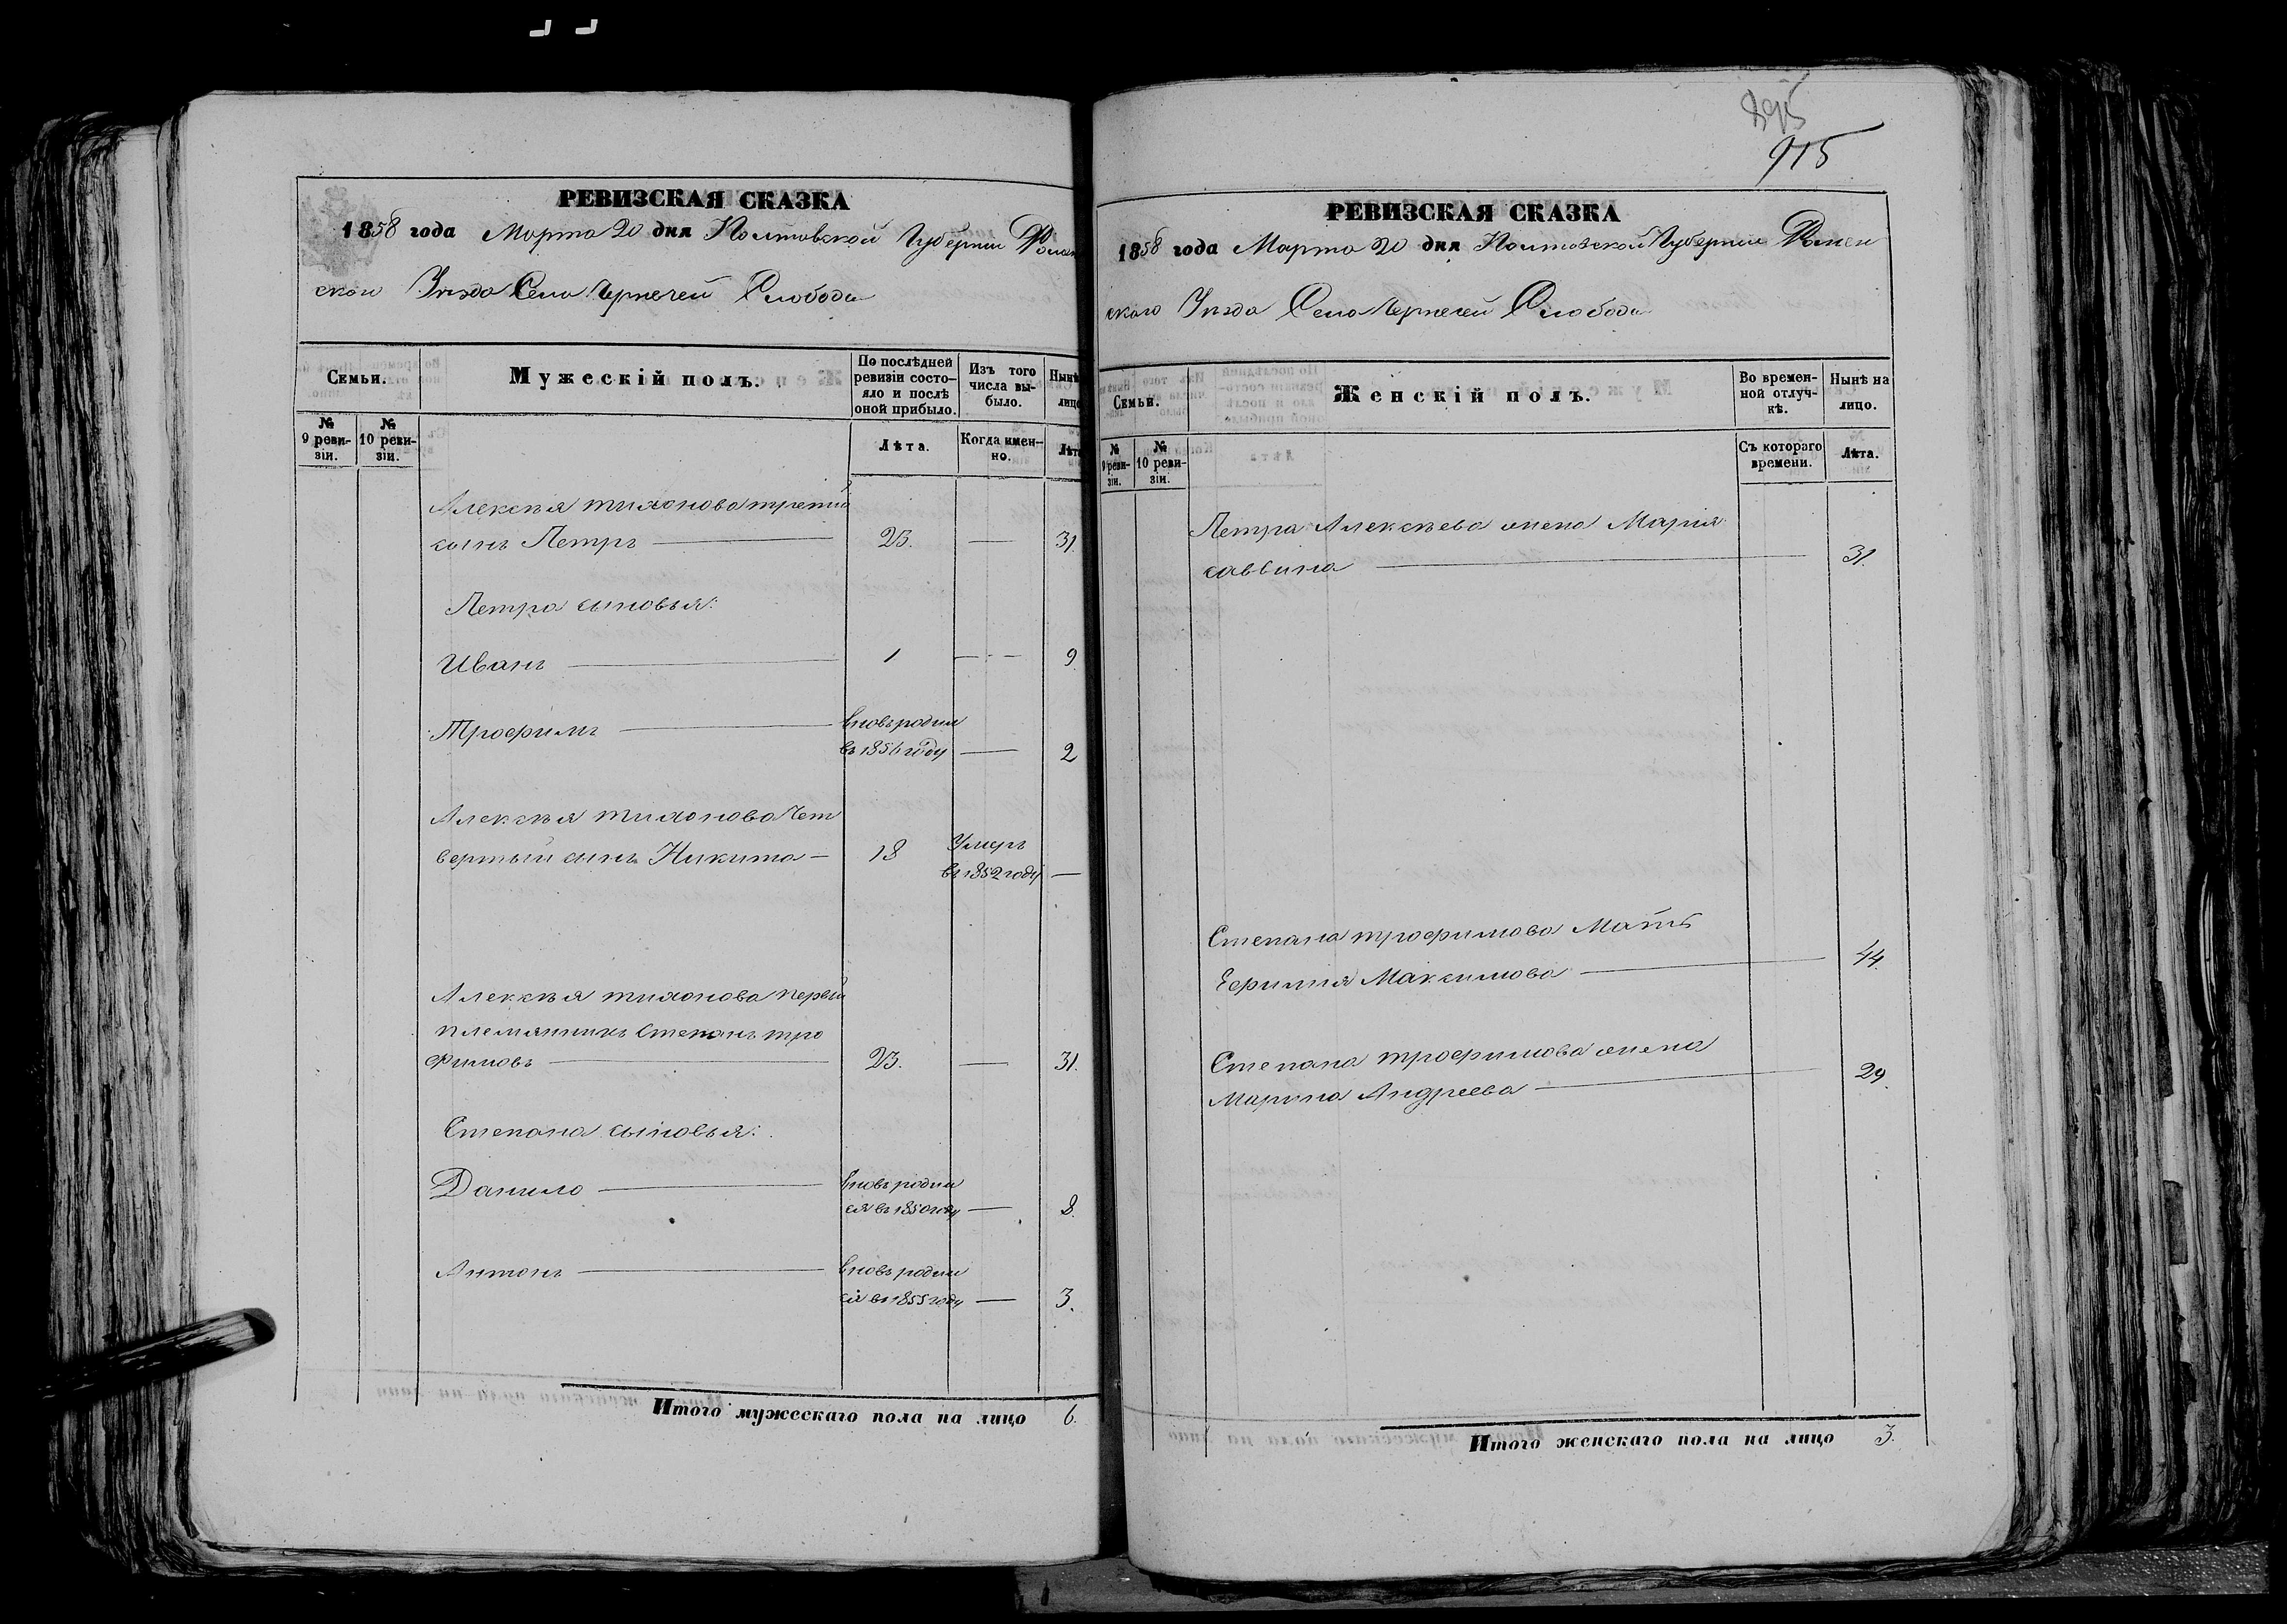 РЕВИЗСКАЯ СКАЗКА
1858 года Марта 20 дня Полтавской Губернии Ромен
ского Уѣзда Села Чернечей Слободы
Семьи.
Мужескій полъ.
По послѣдней
ревизіи состо-
яло и послѣ
оной прибыло.
Изъ того
числа вы-
было.
Нынѣ
лицо
№
9 реви-
зіи.
№
10 реви-
зіи.
Лѣта.
Когда имен-
но.
Лѣта
Алексѣя тихонова третій
сынъ Петръ 23. — 31.
Петра сыновья:
Иванъ 1 — 9.
Трофимъ вновь родил
въ 1856 году — 2
Алексѣя тихонова Чет
вертый сынъ Никита — 18 Умеръ
въ 1852 году —
Алексѣя тихонова первый
племянникъ Степанъ тро
фимовъ 23. — 31.
Степана сыновья:
Данило вновь родил
ся въ 1850 году — 8.
Антонъ вновь родил
ся въ 1855 году — 3.
Итого мужескаго пола на лицо 6.
895
915
РЕВИЗСКАЯ СКАЗКА
1858 года Марта 20 дня Полтавской Губернии Ромен
ского Уѣзда Села Чернечей Слободы
Семьи.
Женскій полъ.
Во времен-
ной отлуч-
кѣ.
Нынѣ на
лицо.
№
9 реви-
зіи.
№
10 реви-
зіи.
Съ котораго
времени.
Лѣта.
Петра Алексѣева жена Марія
саввина 31.
Степана трофимова Мать
Ефимия Максимова 44.
Степана трофимова жена
Марина Андреева 29.
Итого женскаго пола на лицо 3.